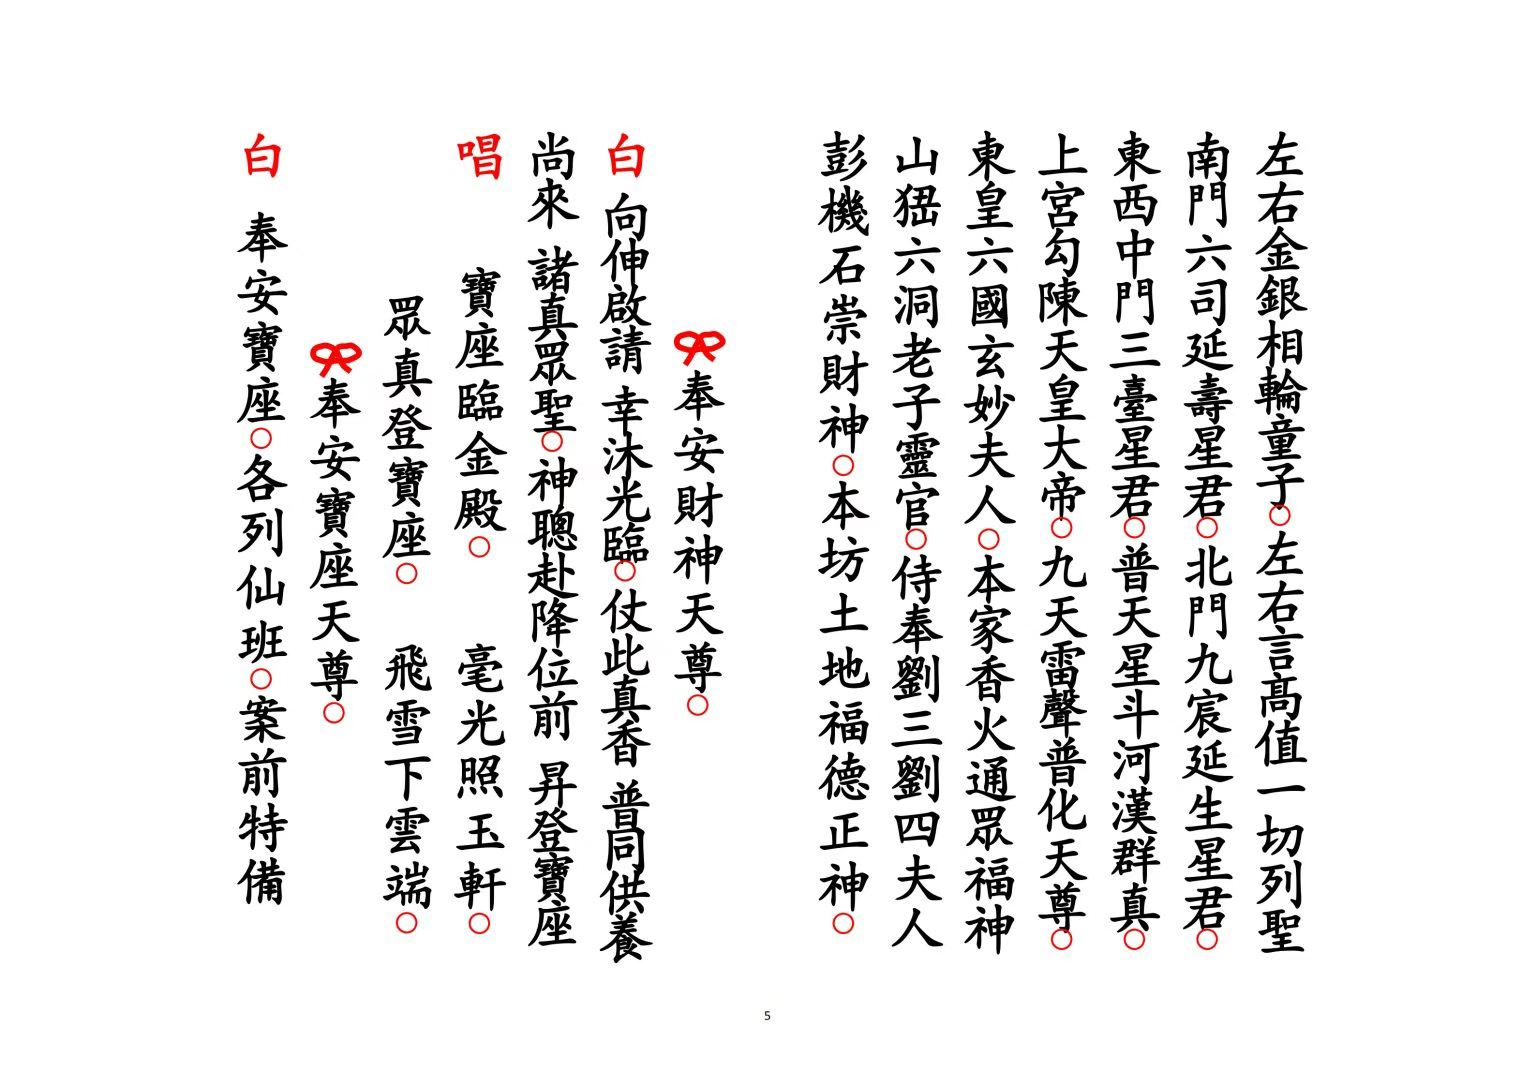 左右金銀相輪童子○左右言高值一切列聖
南門六司延壽星君○北門九宸延生星君○
東西中門三臺星君○普天星斗河漢群真○
上宮勾陳天皇大帝○九天雷聲普化天尊○
東皇六國玄妙夫人○本家香火通眾福神
山𤞚六洞老子靈官○侍奉劉三劉四夫人
彭機石崇財神○本坊土地福德正神○
奉安財神天尊○
白 向伸啟請 幸沐光臨○仗此真香 普同供養
尚來 諸真眾聖○神聰赴降位前 昇登寶座
唱 寶座臨金殿○ 毫光照玉軒○
眾真登寶座○ 飛雪下雲端○
奉安寶座天尊○
白 奉安寶座○各列仙班○案前特備
5